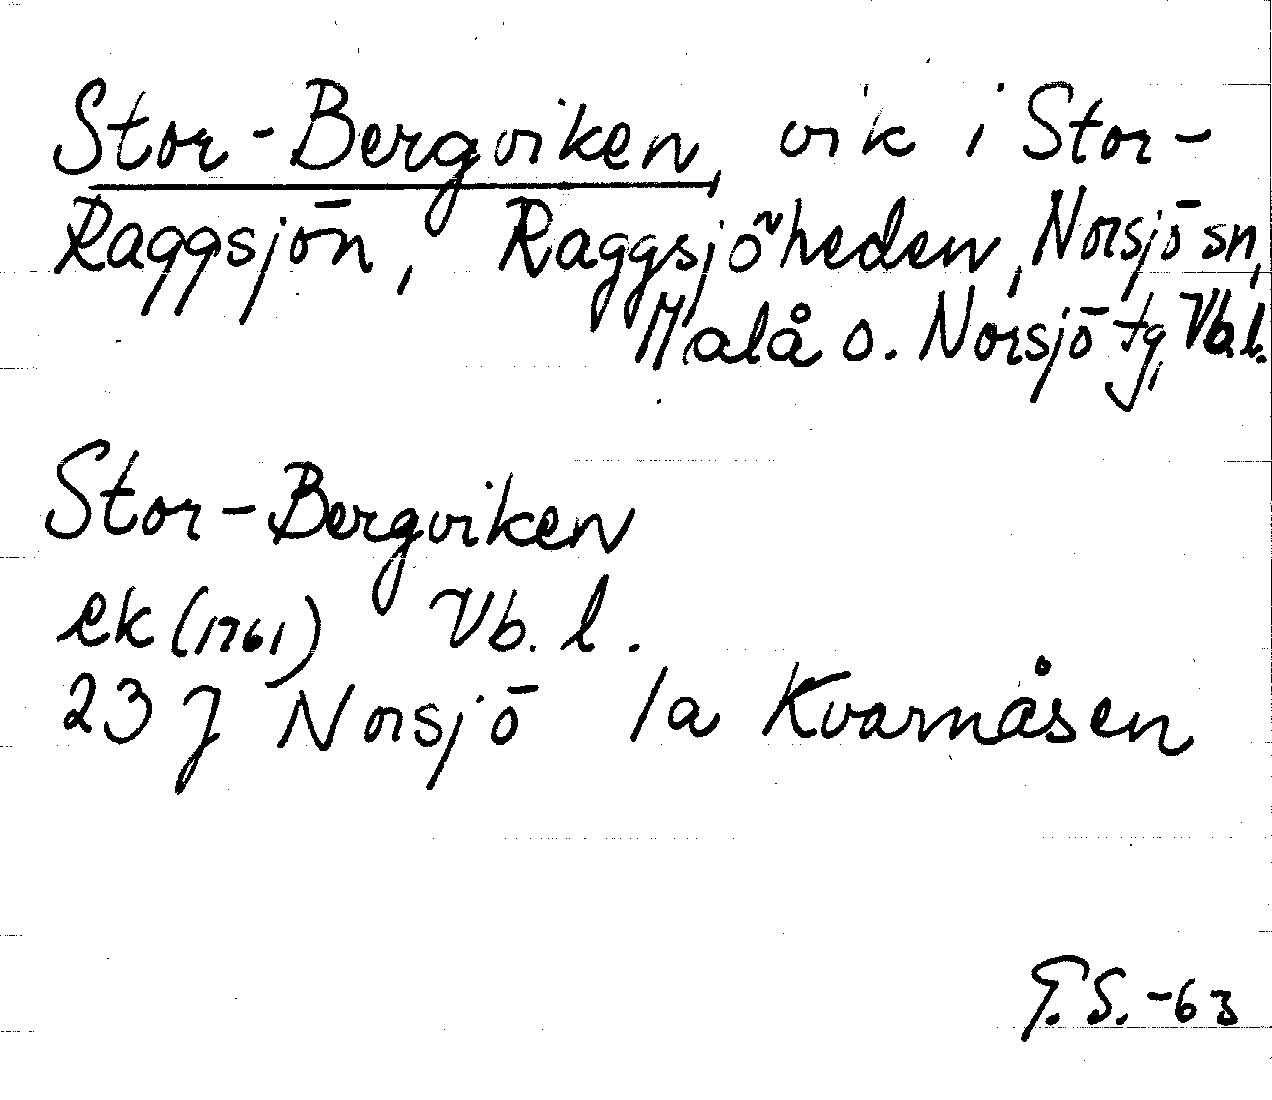 Stor-Bergviken, vik i Stor-
Raggsjön, Raggsjöheden, Norsjö sn,
Malå o. Norsjö tg, Vb.l.
Stor-Bergviken
ek (1761) Vb. l.
23 J Norsjö 1a Kvarnåsen
G.S. -63